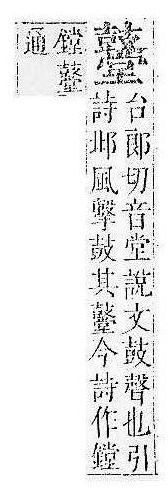 鼞
台郎切音堂說文鼓聲也引
詩邶風擊鼓其鼞今詩作鏜
鏜鼞
通